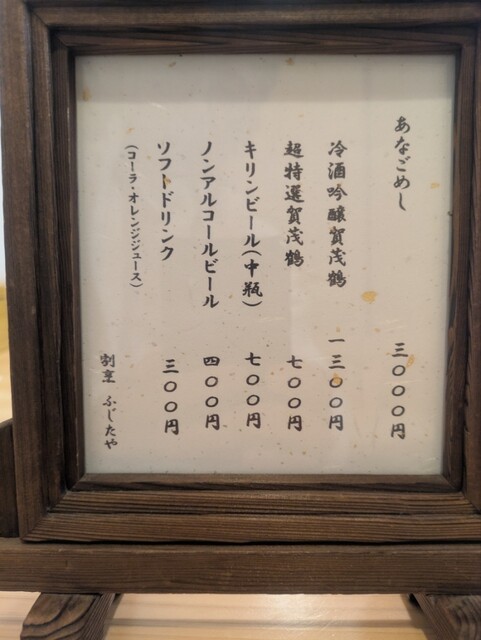 あなごめし 三〇〇〇円
冷酒吟醸賀茂鶴 一三〇〇円
超特選賀茂鶴 七〇〇円
キリンビール(中瓶) 七〇〇円
ノンアルコールビール 四〇〇円
ソフトドリンク 三〇〇円
(コーラ・オレンジジュース)
割烹 ふじたや